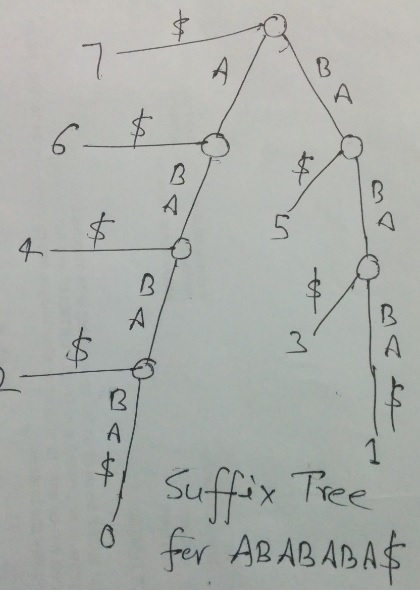 $
7
A
B
A
6
$
B
A
$
5
B
A
4
$
B
A
$
3
B
A
$
1
2
$
B
A
$
0
Suffix Tree
for ABABABA$